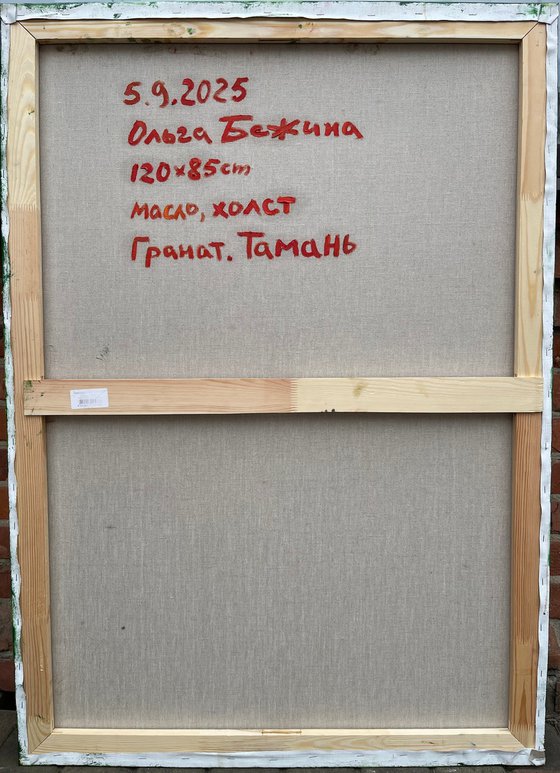 5.9.2025
Ольга Бежина
120x85cm
масло, холст
Гранат. Тамань